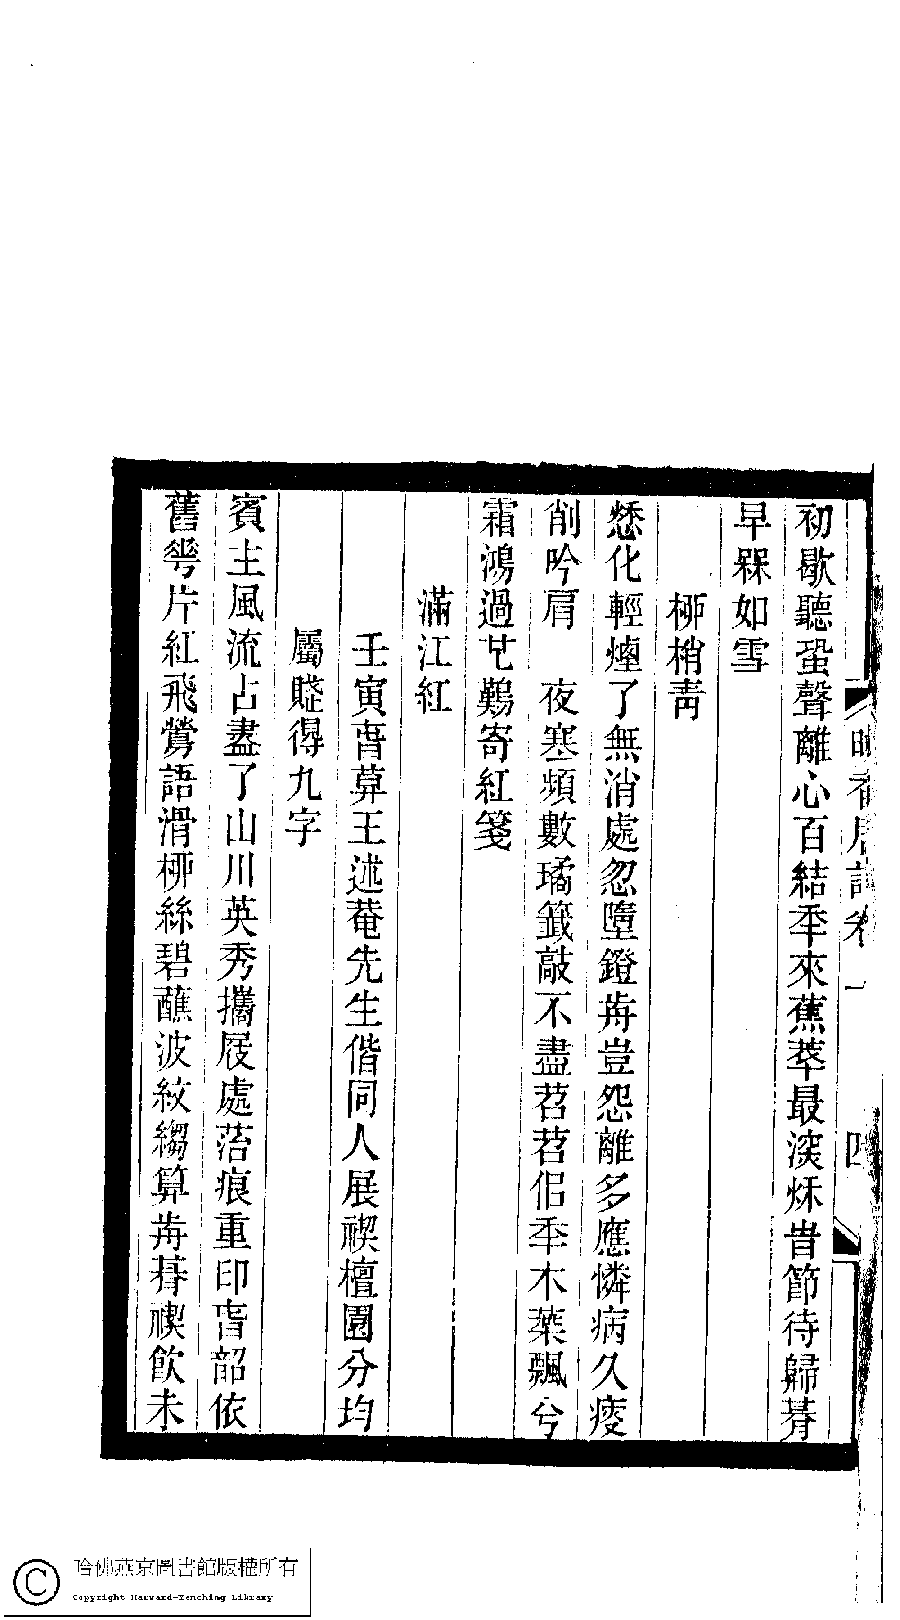 晚香居詞卷一 四
初歇聽蛩聲離心百結秊來蕉萃最湥秌旹節待歸朞
早槑如雪
桺梢青
愁化輕煙了無消處忽墮鐙歬豈怨離多應憐病久痠
削吟肩 夜寒頻數璚籤敲不盡苕苕侣秊木葉飄兮
霜鴻過也難寄紅箋
滿江紅
壬寅旾莫王述菴先生偕同人展禊檀園分均
屬賤得九字
賓主風流占盡了山川英秀攜屐處菭痕重印旾韶依
舊花片紅飛鶯語滑桺絲碧蘸波紋縐算歬朞禊飲未
哈佛燕京圖書館版權所有
Copyright Harvard-Yenching Library